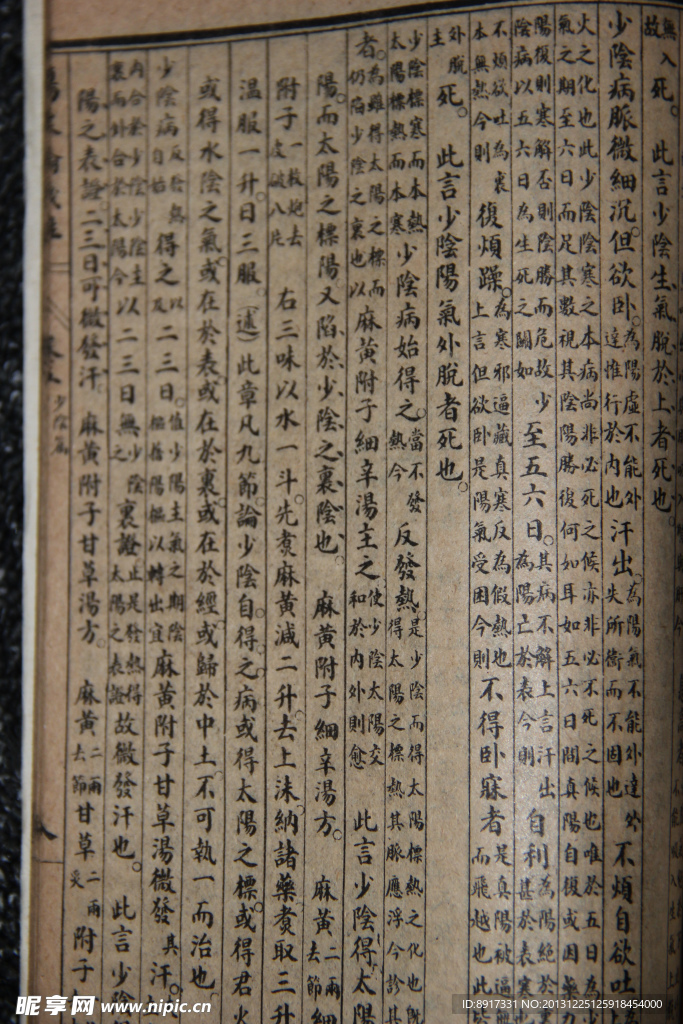 無故入死。此言少陰生氣脫於上者死也。
少陰病脈微細沉。但欲臥。為陽虛不能外達惟行於內也汗出。為陽氣不能外達外失所衛而不固也不煩自欲吐
火之化也此少陰陰寒之本病尚非必死之候亦非必不死之候也唯於五日為少
氣之期至六日而足其數視其陰陽勝復何如耳如五六日間真陽自復或因藥
陽復則寒解否則陰勝而危故少陰病以五六日為生死之關如至五六日。其病不解上言汗出為陽亡於表今則自利為陽絕於甚於表
不煩欲吐為裏本無熱今則復煩躁。為寒邪逼藏真寒反為假熱也上言但欲臥是陽氣受困今則不得臥寐者是真陽被逼而飛越也此
外脫主死。此言少陰陽氣外脫者死也。
少陰標寒而本熱太陽標熱而本寒少陰病始得之。當不發熱今反發熱。是少陰而得太陽標熱之化也既得太陽之標熱其脈應浮今診其
者。為雖得太陽之標而仍陷少陰之裏也以麻黃附子細辛湯主之使少陰太陽交和於內外則愈此言少陰得太陽
陽。而太陽之標陽。又陷於少陰之裏陰也。麻黃附子細辛湯方。麻黃二兩去節細
附子一數炮去皮破八片右三味以水一斗。先煑麻黃減二升。去上沫。納諸藥煑取三升
溫服一升。日三服。〔述〕此章凡九節論少陰自得之病。或得太陽之標。或得君火
或得水陰之氣。或在於表。或在於裏。或在於經。或歸於中土。不可執一而治也。
少陰病反發熱自始得之以及二三日。值少陽主氣之期陰樞藉陽樞以轉出宜麻黃附子甘草湯微發其汗。
內合於少陰少陰主裏而外合於太陽今以二三日無少陰之裏證止是發熱得太陽之表證故微發汗也。此言少陰
陽之表證。二三日可微發汗。麻黃附子甘草湯方。麻黃二兩去節甘草二兩炙附子
少陰篇
昵享网 www.nipic.cn
ID:8917331 NO:20131225125918454000